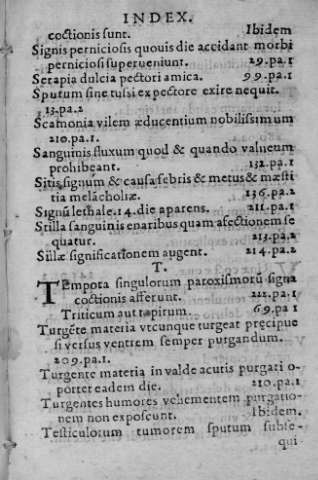 INDEX.
coctionis sunt. Ibidem
Signis perniciosis quouis die accidant morbi
perniciosi superueniunt. 29.pa.1
Serapia dulcia pectori amica. 99.pa.1
Sputum sine tussi ex pectore exire nequit.
13.pa.2
Scamonia vilem æducentium nobilissimum
210.pa.1.
Sanguinis fluxum quod & quando valneum
prohibeant. 132.pa.1
Sitis signum & causa febris & metus & mæsti
tia melācholiæ. 136.pa.2
Signū lethale.14.die aparens. 211.pa.1
Stilla sanguinis enaribus quam afectionem se
quatur. 213.pa.2
significationem augent. 214.pa.2
T.
Tempora singulorum paroxismorū signa
coctionis afferunt. 222.pa.1
Triticum aut rapirum. 69.pa 1
Turgēte materia vtcunque turgeat pręcipue
si versus ventrem semper purgandum.
209.pa.1.
Turgente materia in valde acutis purgari o-
portet eadem die. 210.pa.1
Turgentes humores vehementem purgatio-
nem non exposcunt. Ibidem.
Testiculorum tumorem sputum subse-
qui